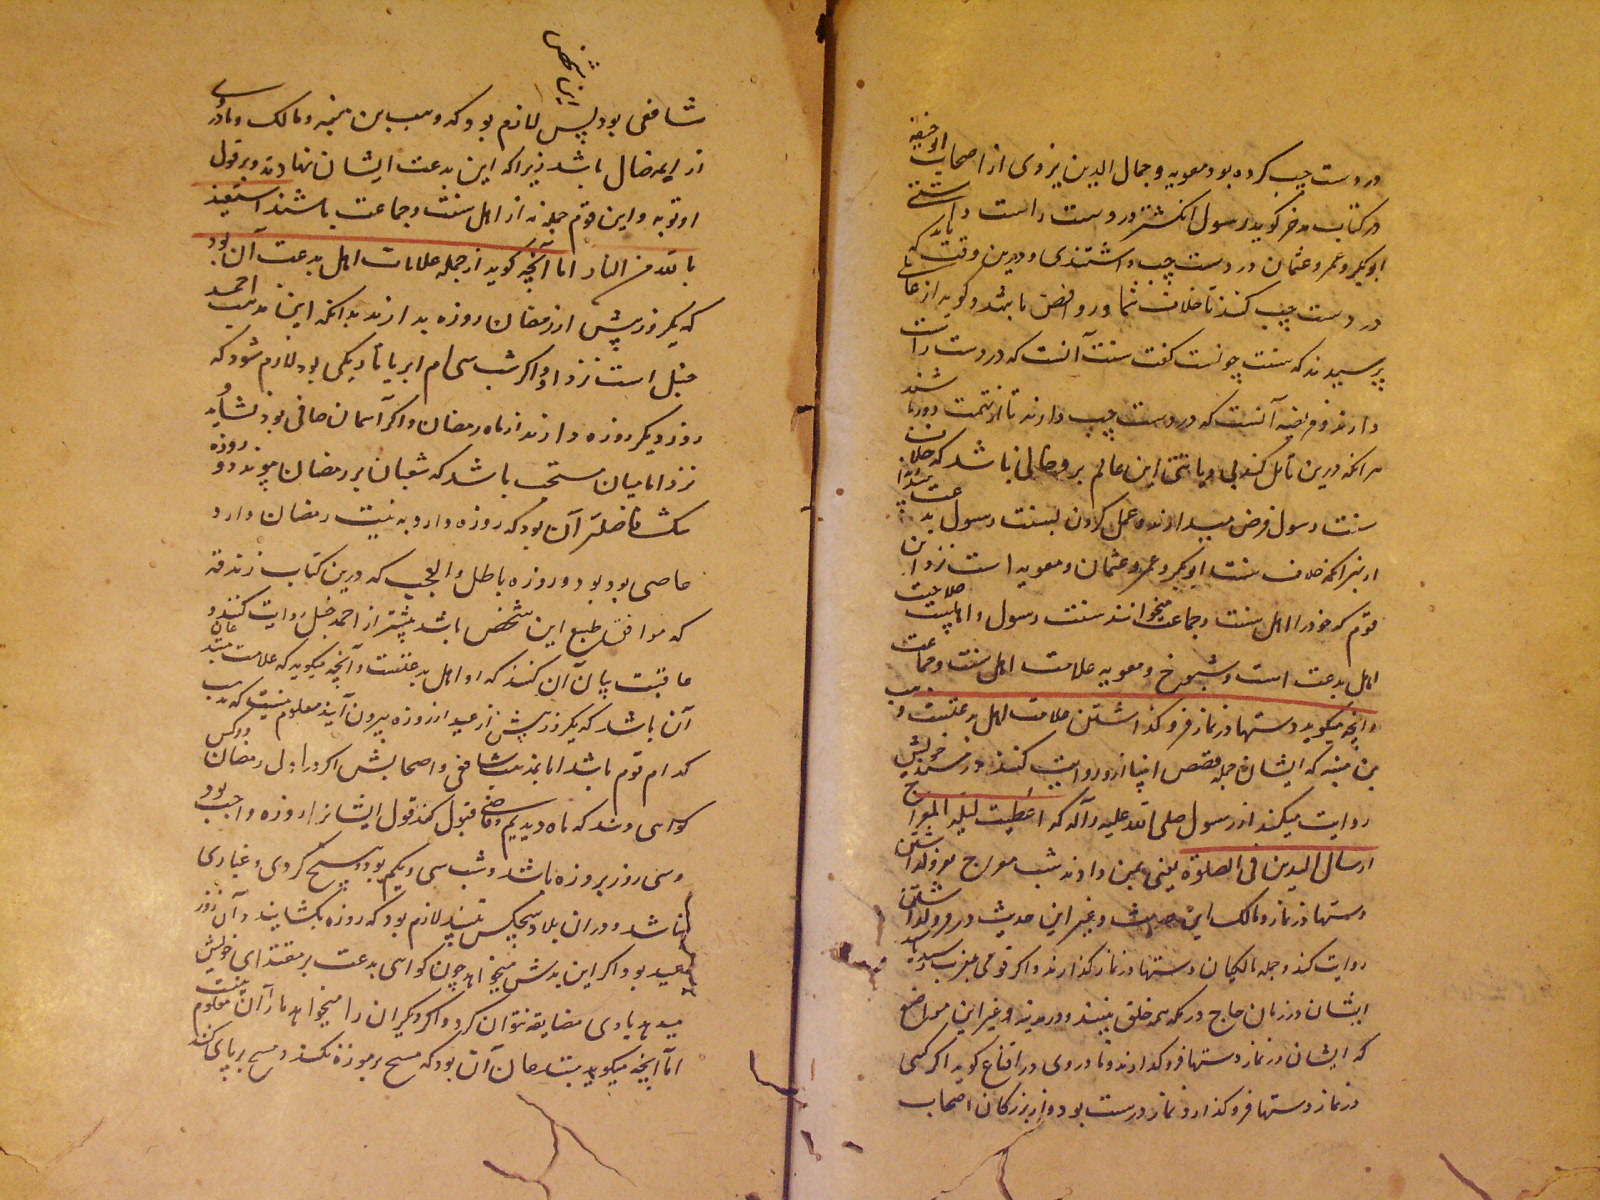 در دست چپ کرده بود معویه و جمال الدین یزدی از اصحاب ابو حنیفه
در کتاب مدخر کوید رسول انکشتر در دست راست داشتی
ابوبکر و عمر و عثمان در دست چپ داشتندی و درین وقت باید که
در دست چپ کنند تا خلاف شما و روافض باشد و کویند از عالمی
پرسیدند که سنت چونست کفت سنت آنست که در دست راست
دارند و فریضه آنست که در دست چپ دارند تا از تهمت دور باشند
هر انکه درین تأمل کند بی دیانتی این عالم برو خافی نباشد که خلاف
سنت رسول فرض میدارند و عمل کردن بسنت رسول بدعت
از بهر انکه خلاف سنت ابوبکر و عمر و عثمان و معویه است نزد این
قوم که خود را اهل سنت و جماعت میخوانند سنت رسول و اهلبیت علامت
اهل بدعت است و شیوخ و معویه علامت اهل سنت و جماعت
و آنچه میکوید دستها در نماز فرو کذاشتن علامت اهل بدعتست وهب
بن منبه که ایشان جمله قصص انبیا ازو روایت کنند در مسند خویش
روایت میکند از رسول صلی الله علیه و آله که اعطیت لیلة المعراج
ارسال الیدین فی الصلوة یعنی بمن دادند شب معراج فرو کذاشتن
دستها در نماز و مالک این حدیث و غیر این حدیث در فرو کذاشتن
روایت کند و جمله مالکیان دستها در نماز کذارند و اکر قومی بمغرب رسیدند
ایشان در زمان حاج در مکه همه خلق بینند و در مدینه و غیر این مواضع
که ایشان در نماز دستها فرو کذارند و ماوردی در اقناع کوید اکر کسی
در نماز دستها فرو کذارد نماز درست بود و از بزرکان اصحاب
این شخص
شافعی بود پس لازم بود که وهب بن منبه و مالک و ماوردی
از ایمه ضال باشد زیرا که این بدعت ایشان نهادند و بر قول
او توبه و این قوم جمله نه از اهل سنت و جماعت باشند استعیذ
بالله من النار اما آنچه کوید از جمله علامات اهل بدعت آن بود
که یکروز پیش از رمضان روزه بدارند بدانکه این مذهب احمد
حنبل است نزد او اکر شب سی ام ابر یا تاریکی بود لازم شود که
روز دیکر روزه دارند از ماه رمضان و اکر آسمان صافی بود نشاید و
نزد امامیان مستحب باشد که شعبان بر رمضان پیوندد و روزه
شک فاضلتر آن بود که روزه دارد به نیت رمضان دارد
عاصی بود و روزه باطل و العجب که درین کتاب زندقه
که موافق طبع این شخص باشد بیشتر از احمد حنبل روایت کند و
عاقبت بیان آن کند که او اهل بدعتست و آنچه میکوید که علامت مبتدعان
آن باشد که یکروز پیش از عید از روزه بیرون آیند معلوم نیست که مذهب
کدام قوم باشد اما بمذهب شافعی و اصحابش اکر در اول رمضان دو کس
کواهی دهند که ماه دیدیم و قاضی قبول کند قول ایشانرا روزه واجب بود
و سی روز بروزه باشد و شب سی و یکم بود و هیچ کردی و غباری
نباشد و در ان بلاد هیچکس نبیند لازم بود که روزه بکشایند و آن روز
عید بود اکر این بدش میخواهد چون کواهی بدعت بر مقتدای خویش
میدهد با وی مضایقه نتوان کرد و اکر دیکران را میخواهد ما را آن معلوم نیست
اما آنچه میکوید مبتدعان آن بود که مسح بر موزه نکند و مسح بر پای کند